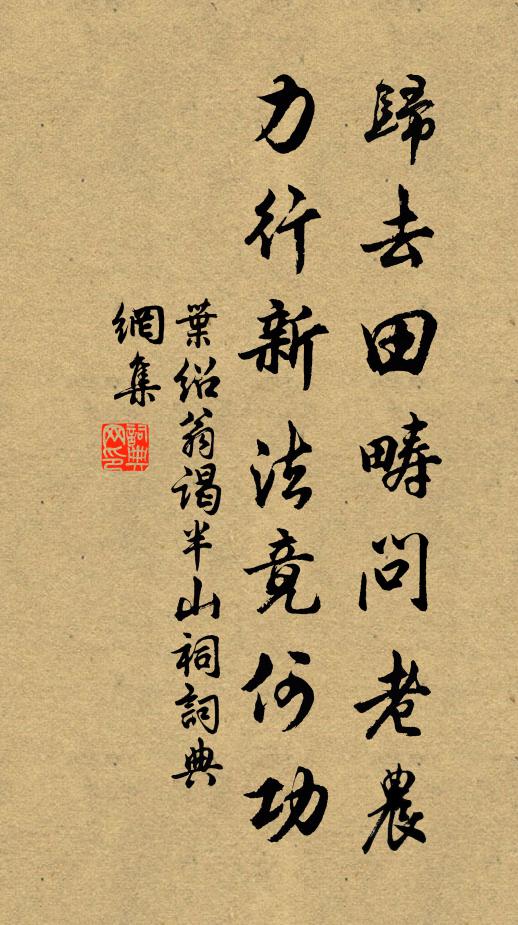 歸去田疇問老農
力行新法竟何功
葉紹翁謁半山祠詞典
網集
詞典
网印